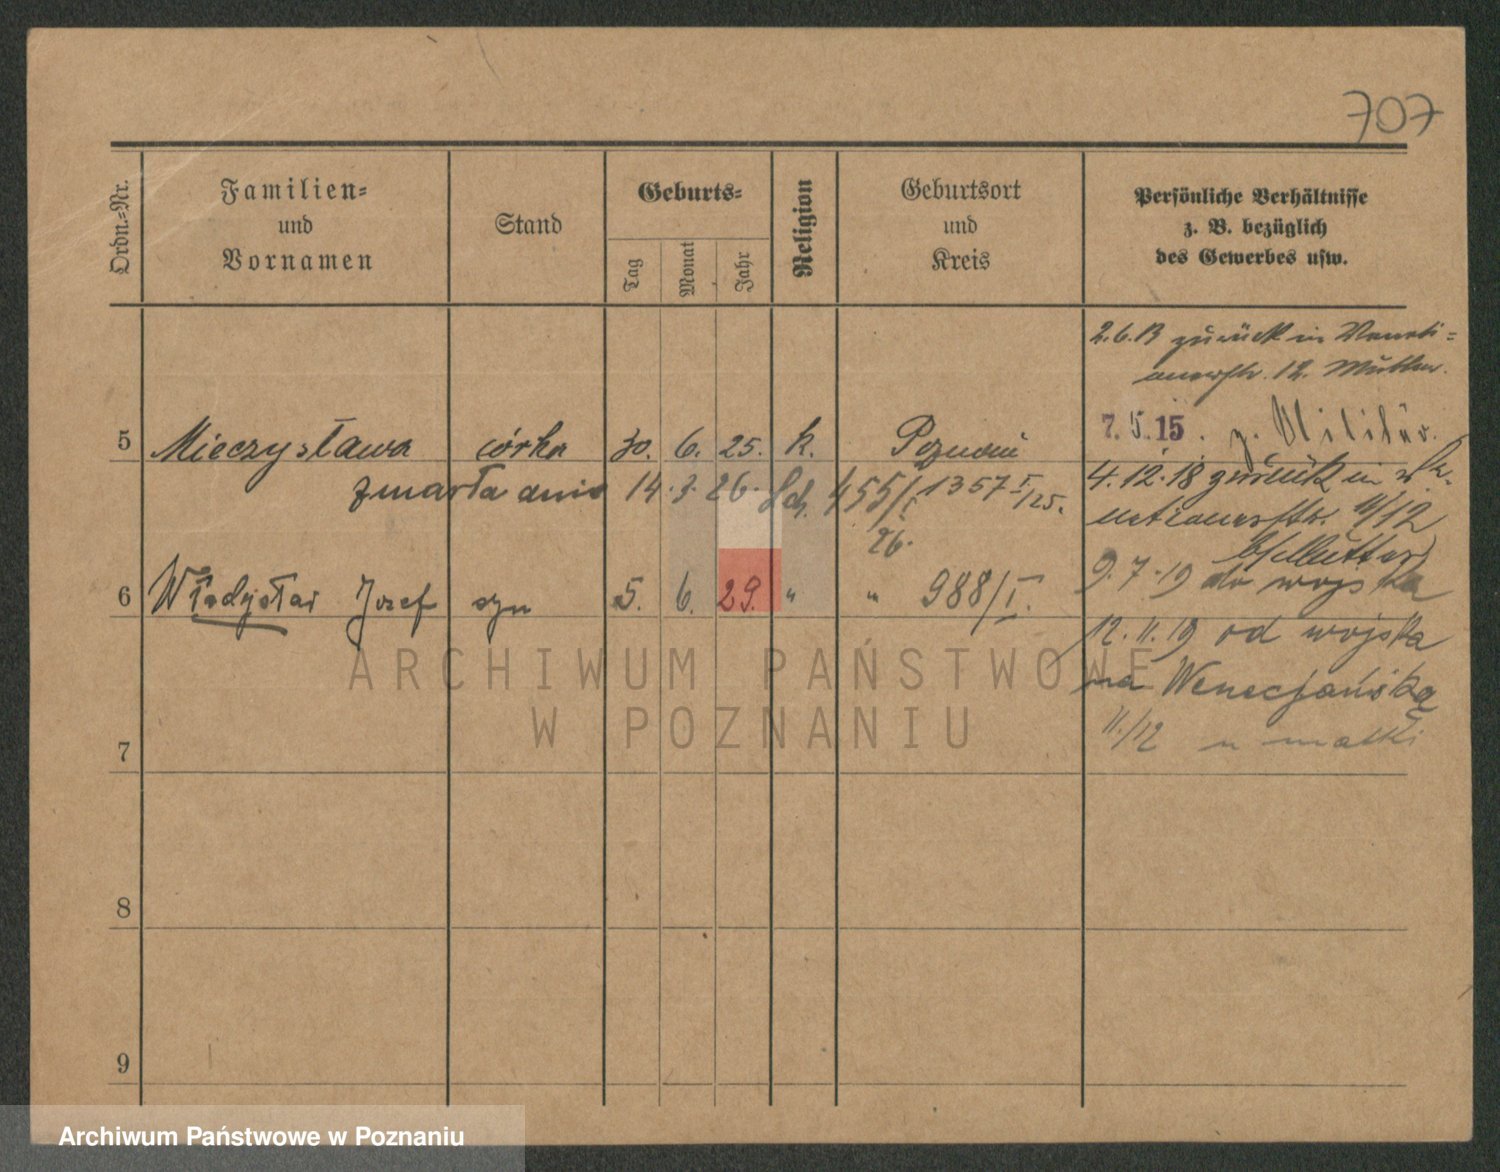 707
Ordn.-Nr.
Familien-
und
Vornamen
Stand
Geburts-
Tag
Monat
Jahr
Religion
Geburtsort
und
Kreis
Persönliche Verhältnisse
z. B. bezüglich
des Gewerbes usw.
2.6.13 zurück in Veneti=
anerstr. 12. Mutter.
7.5.15. z. Militär.
5 Mieczysława córka 30. 6. 25. k. Poznań
zmarła dnia 14.3.26. Sch. 455/I 1357 I/25.
26.
4.12.18 zurück in Ve-
netianerstr. 11/12
b/Mutter)
6 Władysław Józef syn 5. 6. 29. " " 988/I.
9.7.19 do wojska
12.11.19 od wojska
na Wenecjańską
11/12 u matki
7
8
9
ARCHIWUM PAŃSTWOWE
W POZNANIU
Archiwum Państwowe w Poznaniu